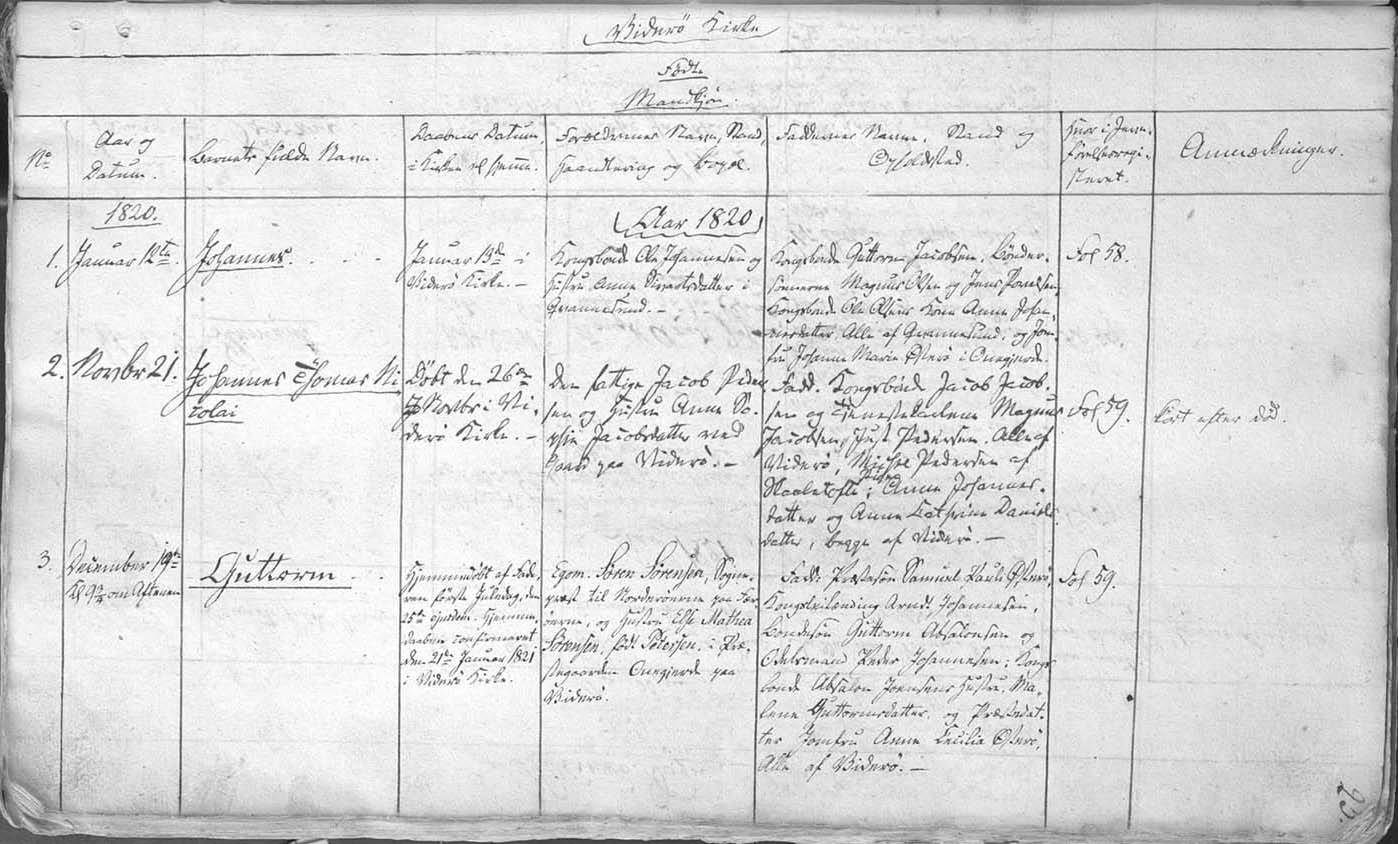 Viderö Kirke
Födte
Mandkjön.
No
Aar og
Datum.
Barnets fulde Navn.
Daabens Datum,
i Kirken el hjemme.
Forældrenes Navn, Stand,
Haandtering og bopæl.
Faddernes Navne, Stand og
Opholdsted.
Hvor i Jevn-
förelsesregi-
steret.
Anmærkninger.
1820.
Aar 1820
1.
Januar 12te
Johannes.
Januar 13de i
Viderö Kirke. –
Kongsbonde Ole Johannesen og
Hustru Anne Sivertsdatter i
Qvannesund. –
Kongsbonde Guttorm Jacobsen, Bönder-
sönnerne Magnus Olsen og Jens Poulsen,
Kongsbonde Ole Olsens Kone Anne Johan-
nesdatter, Alle af Qvannesund, og Jom-
fru Johanne Marie Österö i Onegjerde.
Fol 58.
2.
Novbr 21.
Johannes Thomas Ni
colai
Döbt den 26de
Novbr i Vi-
derö Kirke. –
Den fattige Jacob Peder
sen og Hustru Anne So-
phie Jacobsdatter ved
Gaard paa Viderö. –
Fadd. Kongsbonde Jacob Jacob-
sen og Tjenestekarlene Magnus
Jacobsen, Just Pedersen. Alle af
Viderö, Michel Pedersen af
Skaaletofte; Anne Johannes-
datter og Anne Cathrine Daniels
datter, begge af Viderö. –
Fol 59.
kort efter död.
3.
December 19de
Kl 9½ om Aftenen
Guttorm
Hjemmedöbt af Fade-
ren förste Juledag, den
25de ejusdem. Hjemme-
daaben confirmeret
den 21de Januar 1821
i Viderö Kirke.
Sören Sörensen, Sogne-
præst til Norderöerne paa Fær-
öerne, og Hustru Else Mathea
Sörensen, föd Petersen, i Præ-
stegaarden Onegjerde paa
Viderö.
Fadd: Præstesön Samuel Pauli Österö,
Arndt Johannesen,
Bondesön Guttorm Absalonsen og
Odelsmand Peder Johannesen; Kongs
bonde Absalon Joensens Hustru, Ma-
lene Guttormsdatter, og Præstedat-
ter Jomfru Anne Cecilia Österö,
Alle af Viderö. –
Fol 59.